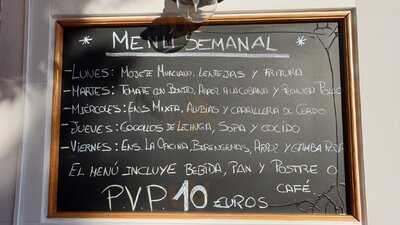 * MENÚ SEMANAL *
- LUNES: MOJETE MURCIANO, LENTEJAS Y FRITURA
- MARTES: TOMATE CON BONITO, ARROZ A LA CUBANA Y
- MIÉRCOLES: ENS MIXTA, ALUBIAS Y CARRILLERA DE CERDO
- JUEVES: COGOLLOS DE LECHUGA, SOPA Y COCIDO
- VIERNES: ENS LA OFICINA, BERENGENAS, ARROZ Y GAMBA
EL MENÚ INCLUYE BEBIDA, PAN Y POSTRE O
CAFÉ
P.V.P. 10 EUROS